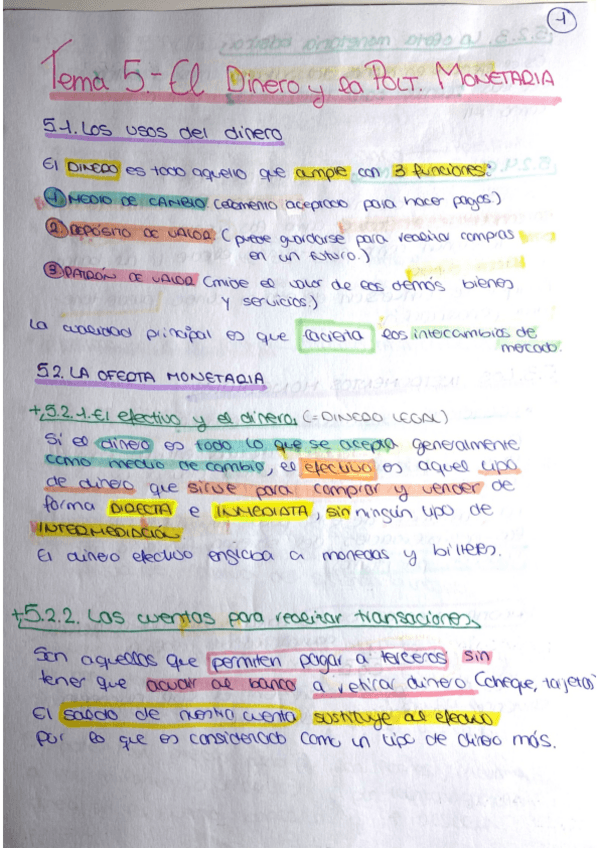 1
Tema 5.- El Dinero y la POLT. MONETARIA
5.1. Los usos del dinero
El DINERO es todo aquello que cumple con 3 funciones:
1 MEDIO DE CAMBIO (elemento aceptado para hacer pagos.)
2. DEPÓSITO DE VALOR. (puede guardarse para realizar compras
en un futuro.)
3. PATRÓN DE VALOR (mide el valor de los demás bienes
y servicios.)
La cualidad principal es que facilita los intercambios de
mercado.
5.2. LA OFERTA MONETARIA
+ 5.2.1. El efectivo y el dinero (= DINERO LEGAL)
Si el dinero es todo lo que se acepta generalmente
como medio de cambio, el efectivo es aquel tipo
de dinero que sirve para comprar y vender de
forma DIRECTA e INMEDIATA, sin ningún tipo de
INTERMEDIACIÓN.
El dinero efectivo engloba a monedas y billetes.
+ 5.2.2. Las cuentas para realizar transaciones
Son aquellas que permiten pagar a terceros sin
tener que acudir al banco a retirar dinero (cheque, tarjetas)
El saldo de nuestra cuenta sustituye al efectivo
por lo que es considerado como un tipo de dinero más.